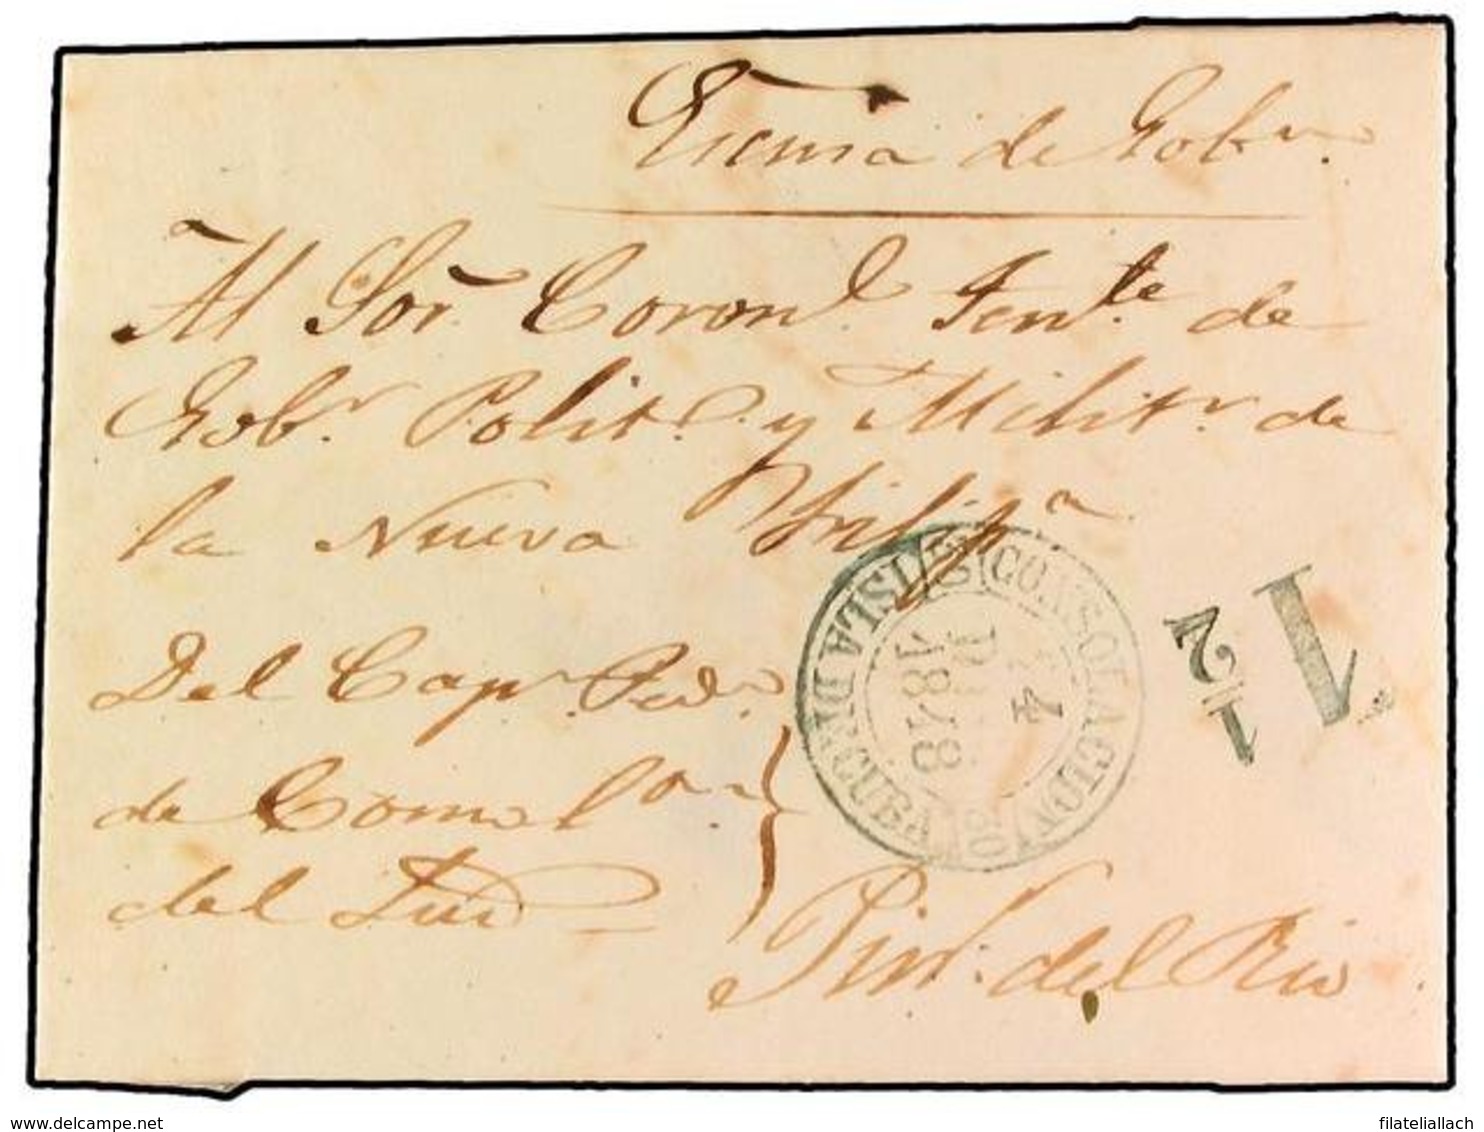 de Gobno.
Al Sor. Coronl. Tente. de
Gobr. Polito. y Militr. de
la Nueva Filipa
Del Capn. Pedo.
de Consoln.
del Sur
Pinr. del Rio
ISLA DE CUBA
CONSOLACION
4
1848
1 1/2
www.delcampe.net
filateliallach